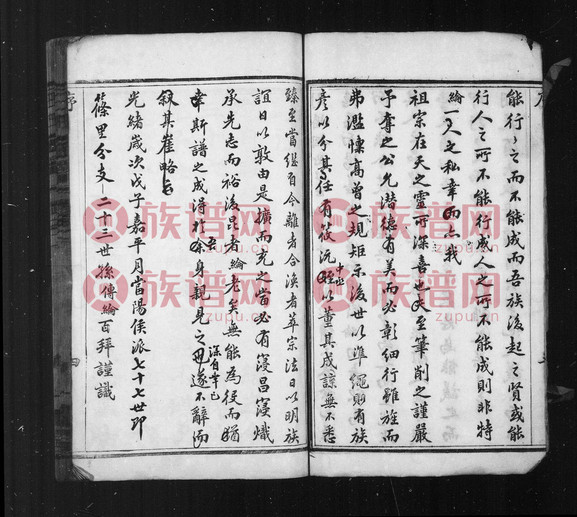 序
能行之而不能成而吾族後起之賢或能
行人之所不能行成人之所不能成則非特
綸一人之私幸而亦我
祖宗在天之靈所深喜也夫至筆削之謹嚴
予奪之公允潛德有美而必彰細行雖旌而
弗濫懍高曾之規矩示後世以準繩則有族
彥以分其任有筱沅中丞以董其成諒無不悉
臻至當繼自今離者合渙者萃宗法日以明族
誼日以敦由是擴而充之當必有寖昌寖熾
承先志而裕後昆者綸老矣無能為役而猶
幸斯譜之成得於吾身親見之深自幸已遂不辭而
敘其崖略云
光緒歲次戊子嘉平月當陽侯派七十七世即
篠里分支二十三世孫傳綸百拜謹識
序
族谱网
zupu.cn